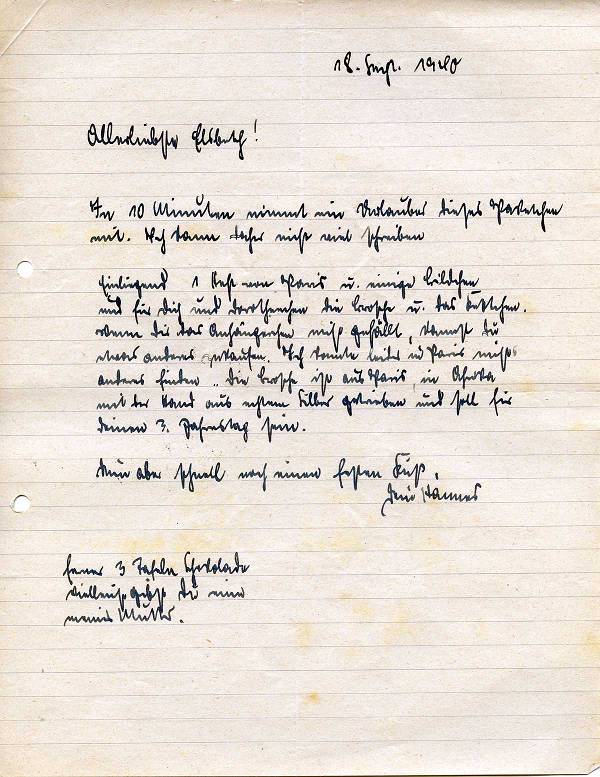 18. Sept. 1940
Allerliebste Elsbeth!
In 10 Minuten nimmt ein Urlauber dieses Paketchen
mit. Ich kann daher nicht viel schreiben
Einliegend 1 Heft von Paris u. einige Bildchen
und für Dich und Dorothenchen die Brosche u. das Kettchen.
Wenn dir das Anhängerchen nicht gefällt, kannst Du
etwas anderes kaufen. Ich konnte leider in Paris nichts
anderes finden. Die Brosche ist aus Paris, in
mit der Hand aus echtem Silber getrieben und soll für
deinen 3. Jahrestag sein.
Nun aber schnell noch einen festen Kuß.
Dein Hannes
Ferner 3 Tafeln Schokolade
vielleicht gibst Du eine
meiner Mutter.